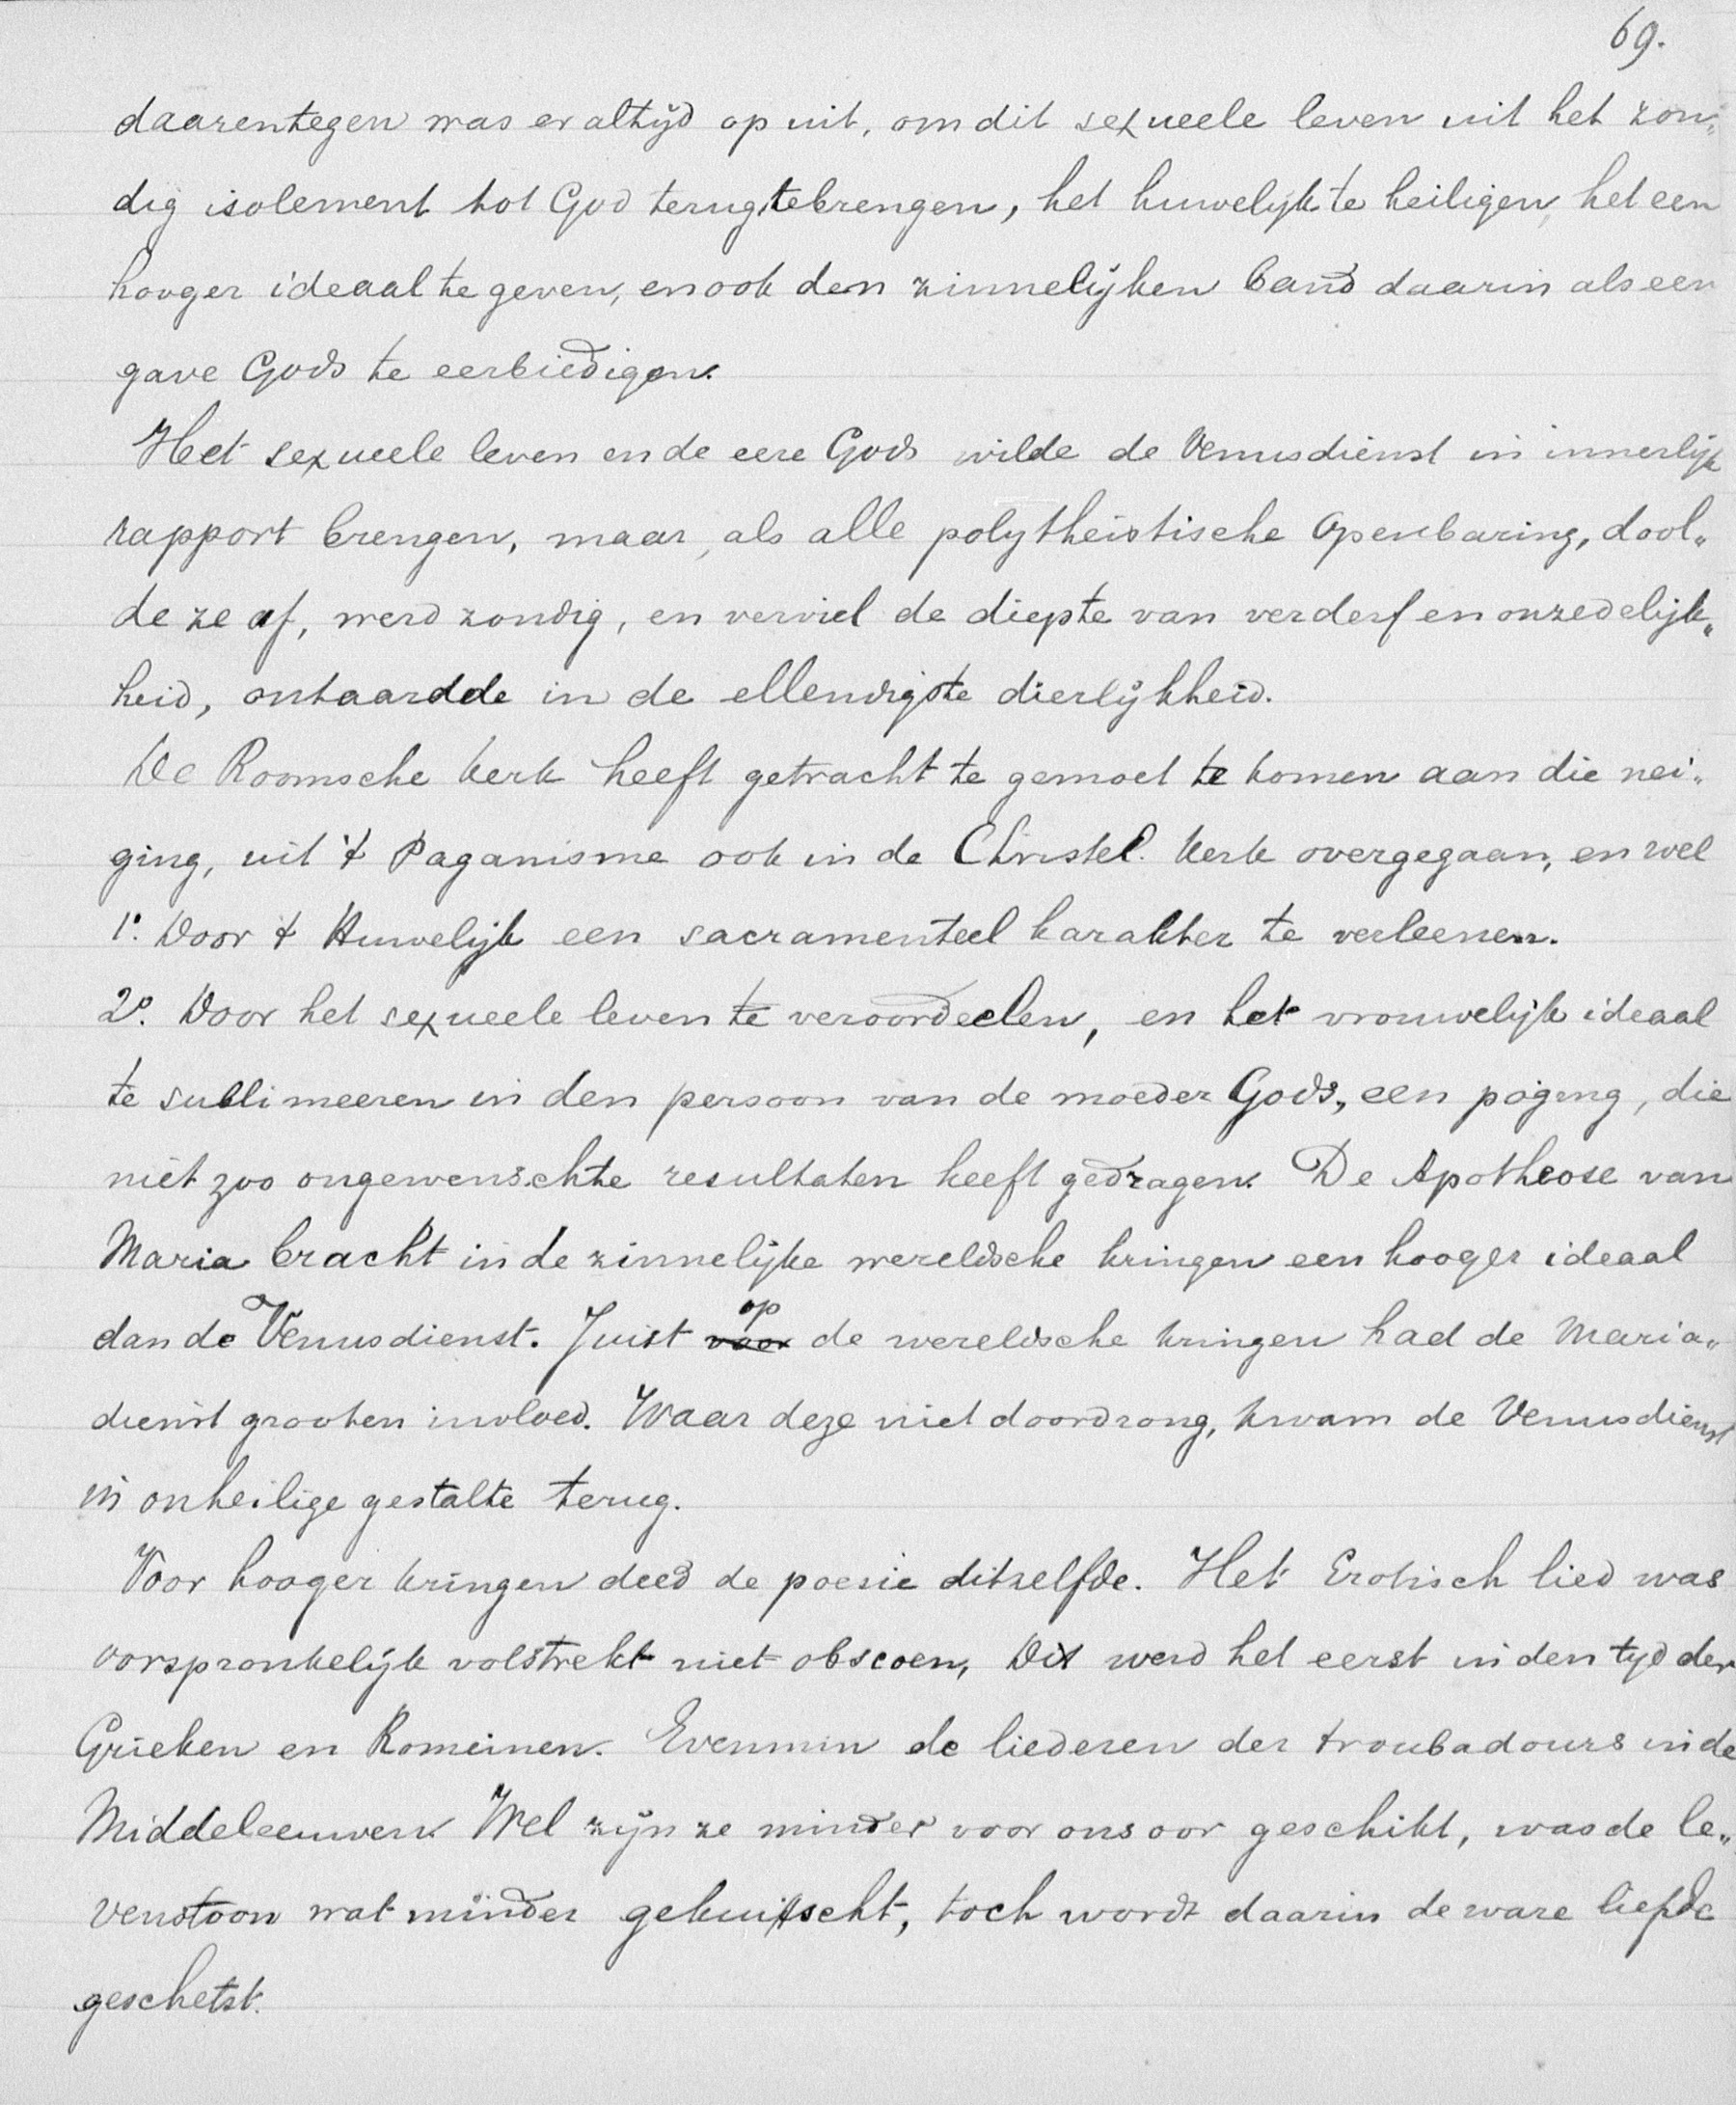 69.
daarentegen was er altijd op uit, om dit sexueele leven uit het zon„
dig isolement tot God terug te brengen, het huwelijk te heiligen, het een
hooger ideaal te geven, en ook den zinnelijken band daarin als een
gave Gods te eerbiedigen.
Het sexueele leven en de eere Gods wilde de Venusdienst in innerlijk
rapport brengen, maar, als alle polytheistische Openbaring, dool„
de ze af, werd zondig, en verviel de diepte van verderf en onzedelijk„
heid, ontaardde in de ellendigste dierlijkheid.
De Roomsche Kerk heeft getracht te gemoet te komen aan die nei„
ging, uit 't Paganisme ook in de Christel. Kerk overgegaan, en wel
1º. Door 't Huwelijk een sacramenteel karakter te verleenen.
2º. Door het sexueele leven te veroordeelen, en het vrouwelijk ideaal
te sublimeeren in den persoon van de moeder Gods, een poging, die
niet zoo ongewenschte resultaten heeft gedragen. De Apotheose van
Maria bracht in de zinnelijke wereldsche kringen een hooger ideaal
dan de Venusdienst. Juist voor op de wereldsche kringen had de Maria„
dienst grooten invloed. Waar deze niet doordrong, kwam de Venusdienst
in onheilige gestalte terug.
Voor hooger kringen deed de poesie ditzelfde. Het Erotisch lied was
oorspronkelijk volstrekt niet obscoen, Dit werd het eerst in den tijd der
Grieken en Romeinen. Evenmin de liederen der troubadours in de
Middeleeuwen. Wel zijn ze minder voor ons oor geschikt, was de le„
venstoon wat minder gekuischt, toch wordt daarin de ware liefde
geschetst.